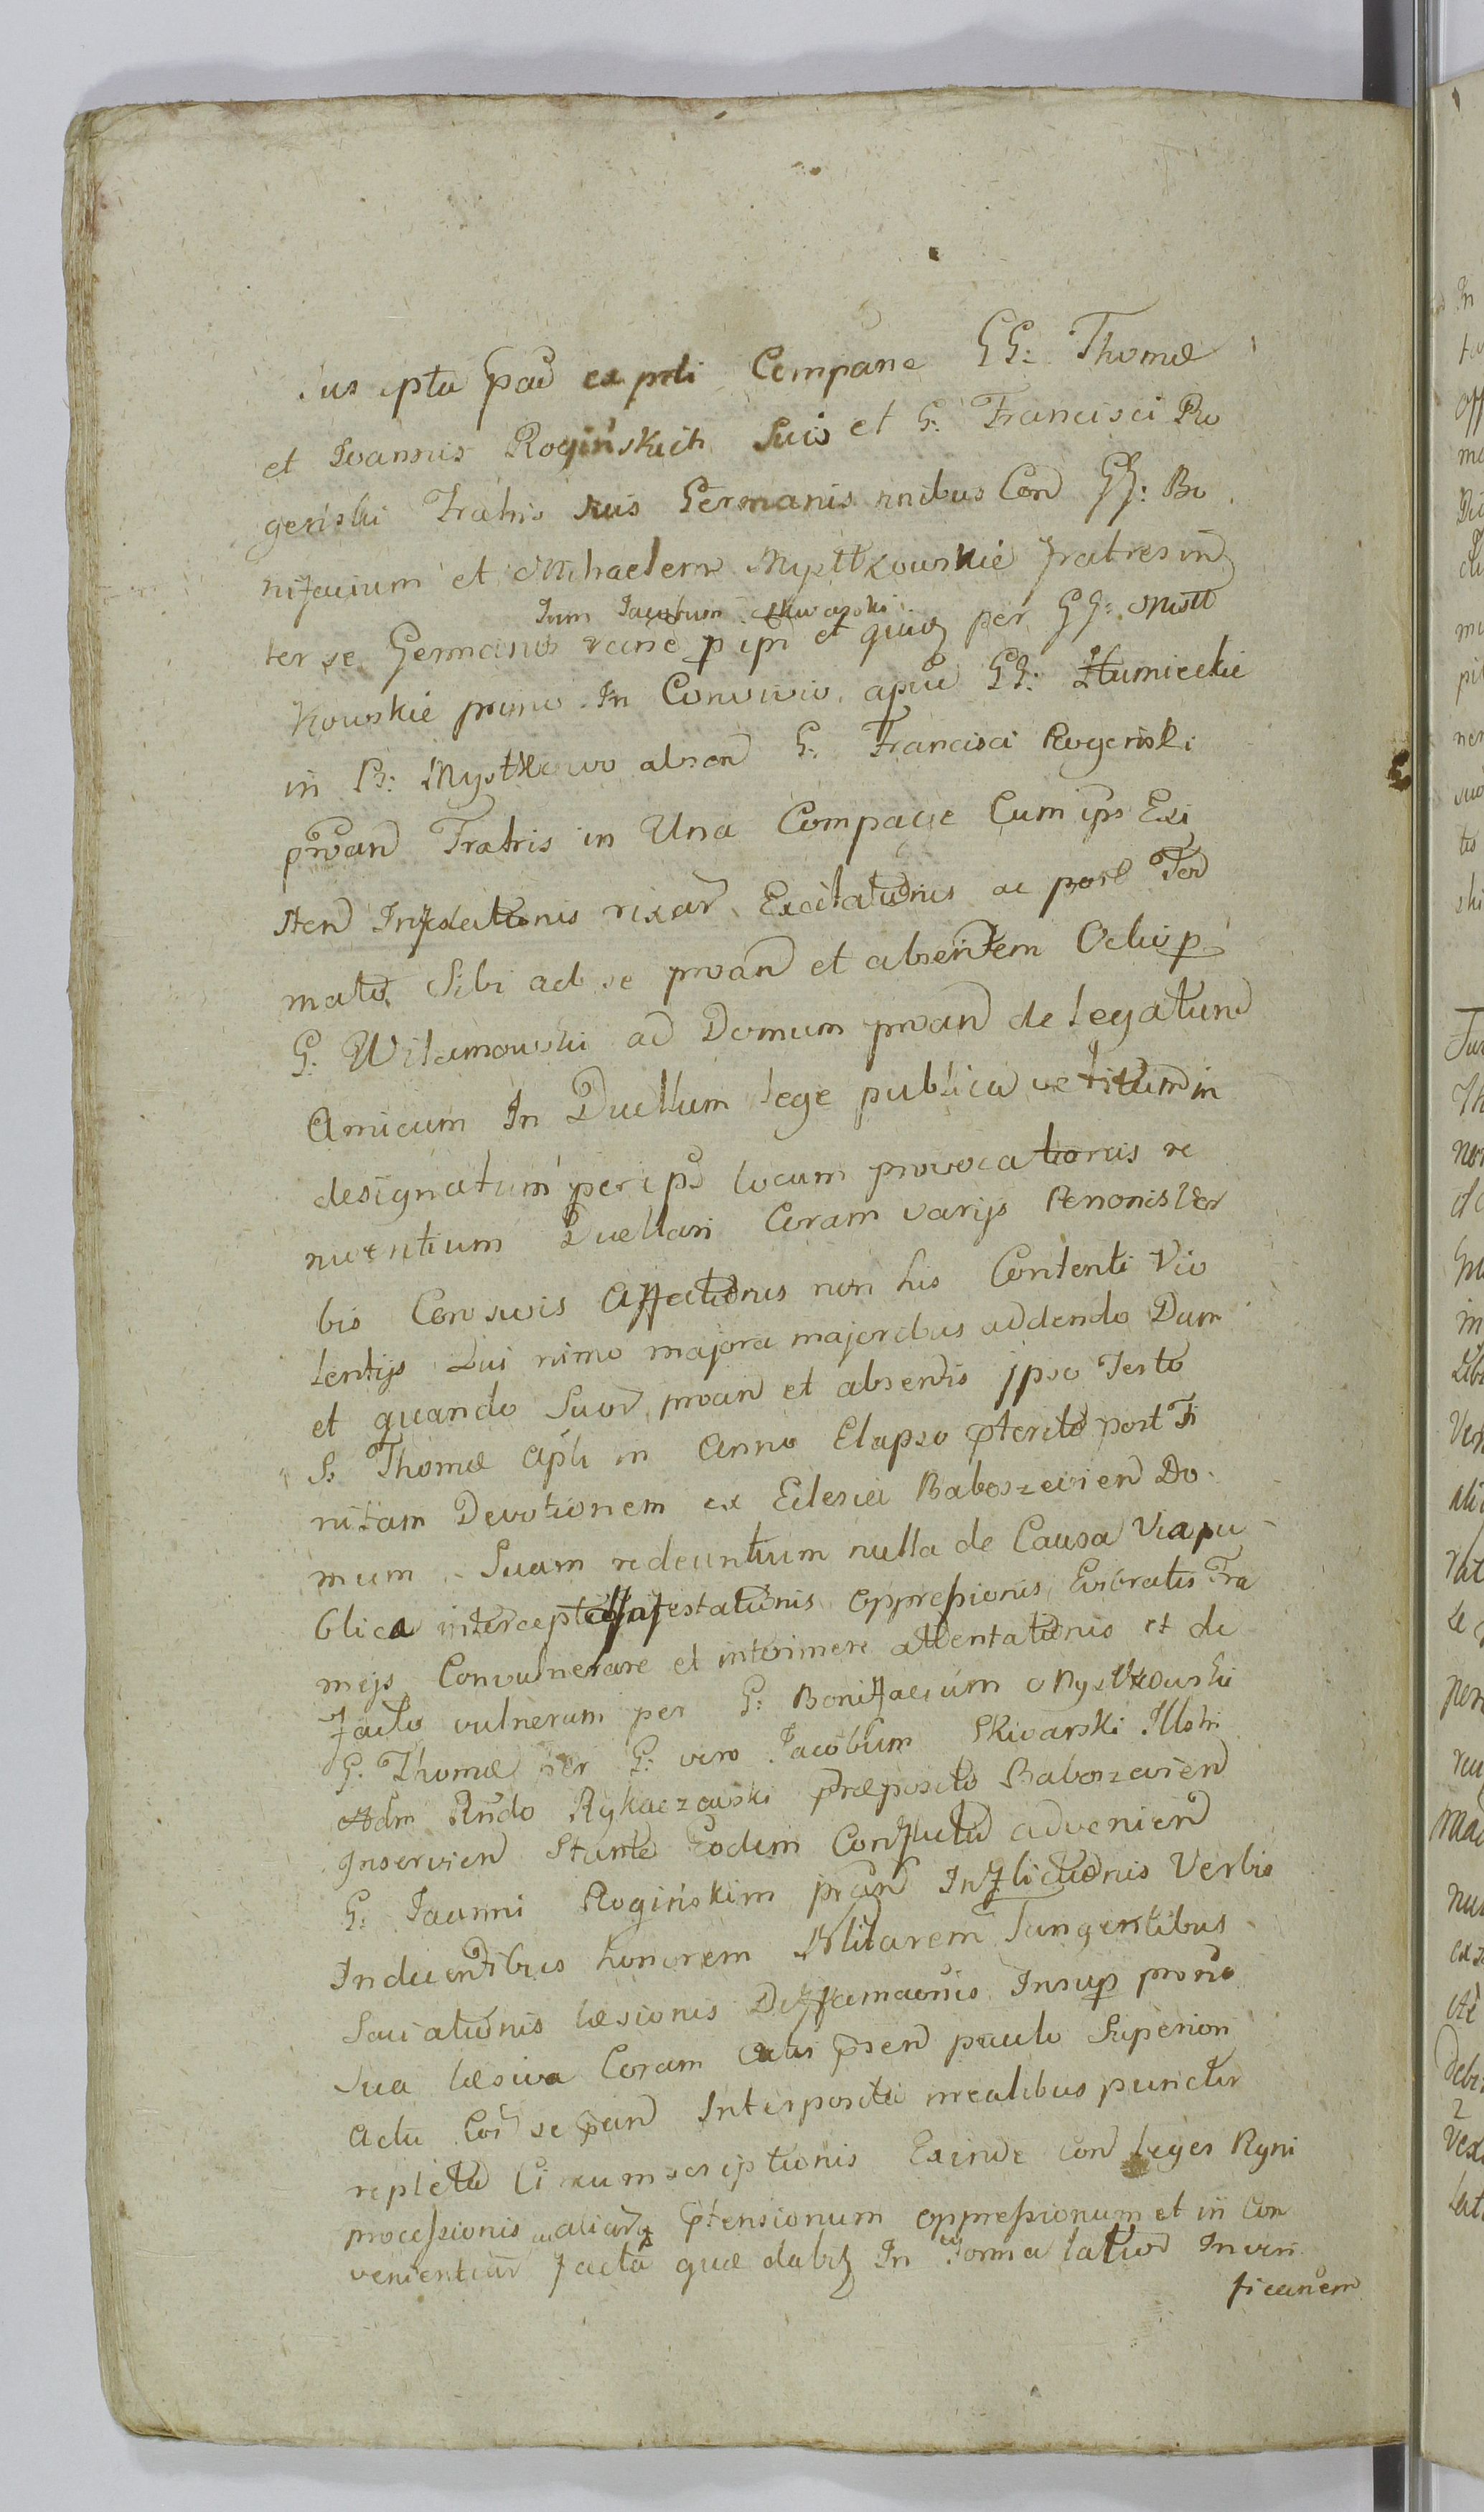 Sus cpta pad ex prti Compane GG: Thomæ
et Ioannis Rogińskich Suis et G. Francisci Ro
geriski Fratris suis Germanis nnibus Con GG: Bo
nifacium et Michaelem Mysttkowskie fratres in
Tum Jacobum Skwarski
ter se Germanos racne p ipn et quiq per GG: Mistt
kowskie primo In Convivio apud GG: Humieckie
in B: Mystkowo absen G. Francisci Rogeriski
proan Fratris in Una Compacie Cum ips Exi
sten Infestationis rixar Excitationis ac post For
mato Sibi ad se proan et absentem Odio p
G. Wilamowski ad Domum proan delegatum
Amicum In Duellum lege publica vetitum in
designatum per ips locum provocationis re
nuentium Duellari Coram varijs Personis Ver
bis Convivis Affectionis non his Contenti Vio
lentijs Qui nimo majora majoribus addendo Dum
et quando Suor proan et absentis ipso Festo
S. Thomæ Apli in Anno Elapso pterito post Fi
nitam Devotionem ex Eclesia Baboszevien Do
mum Suam redeuntium nulla de Causa Via pu
blica intercept Infestationis oppressionis Evibratis Fra
mejs Convulnerare et interimere attentationis et de
facto vulnerum per G: Bonifacium Mysttkowski
G. Thomæ per G: vero Jacobum Skwarski Illstri
Adm Rndo Rykaczewski Præposito Baboszevien
Inservien Stante Eodem Conflictu advenien
G: Ioanni Rogińskim pran Inflictionis Verbis
Inducentibus honorem Nlitarem Tangentibus
Sauciationis læsionis Diffamaonis Insup prono
Sua læsiva Coram Actis psen paulo Superiori
Actu Cor se pand Interposita irrealibus punctis
repleta Circumscriptionis Exinde Con leges Rgni
processionis aliarq ptensionum oppressionum et in Con
venientiar facta quæ dabitz In forma latior In veri
ficaonem